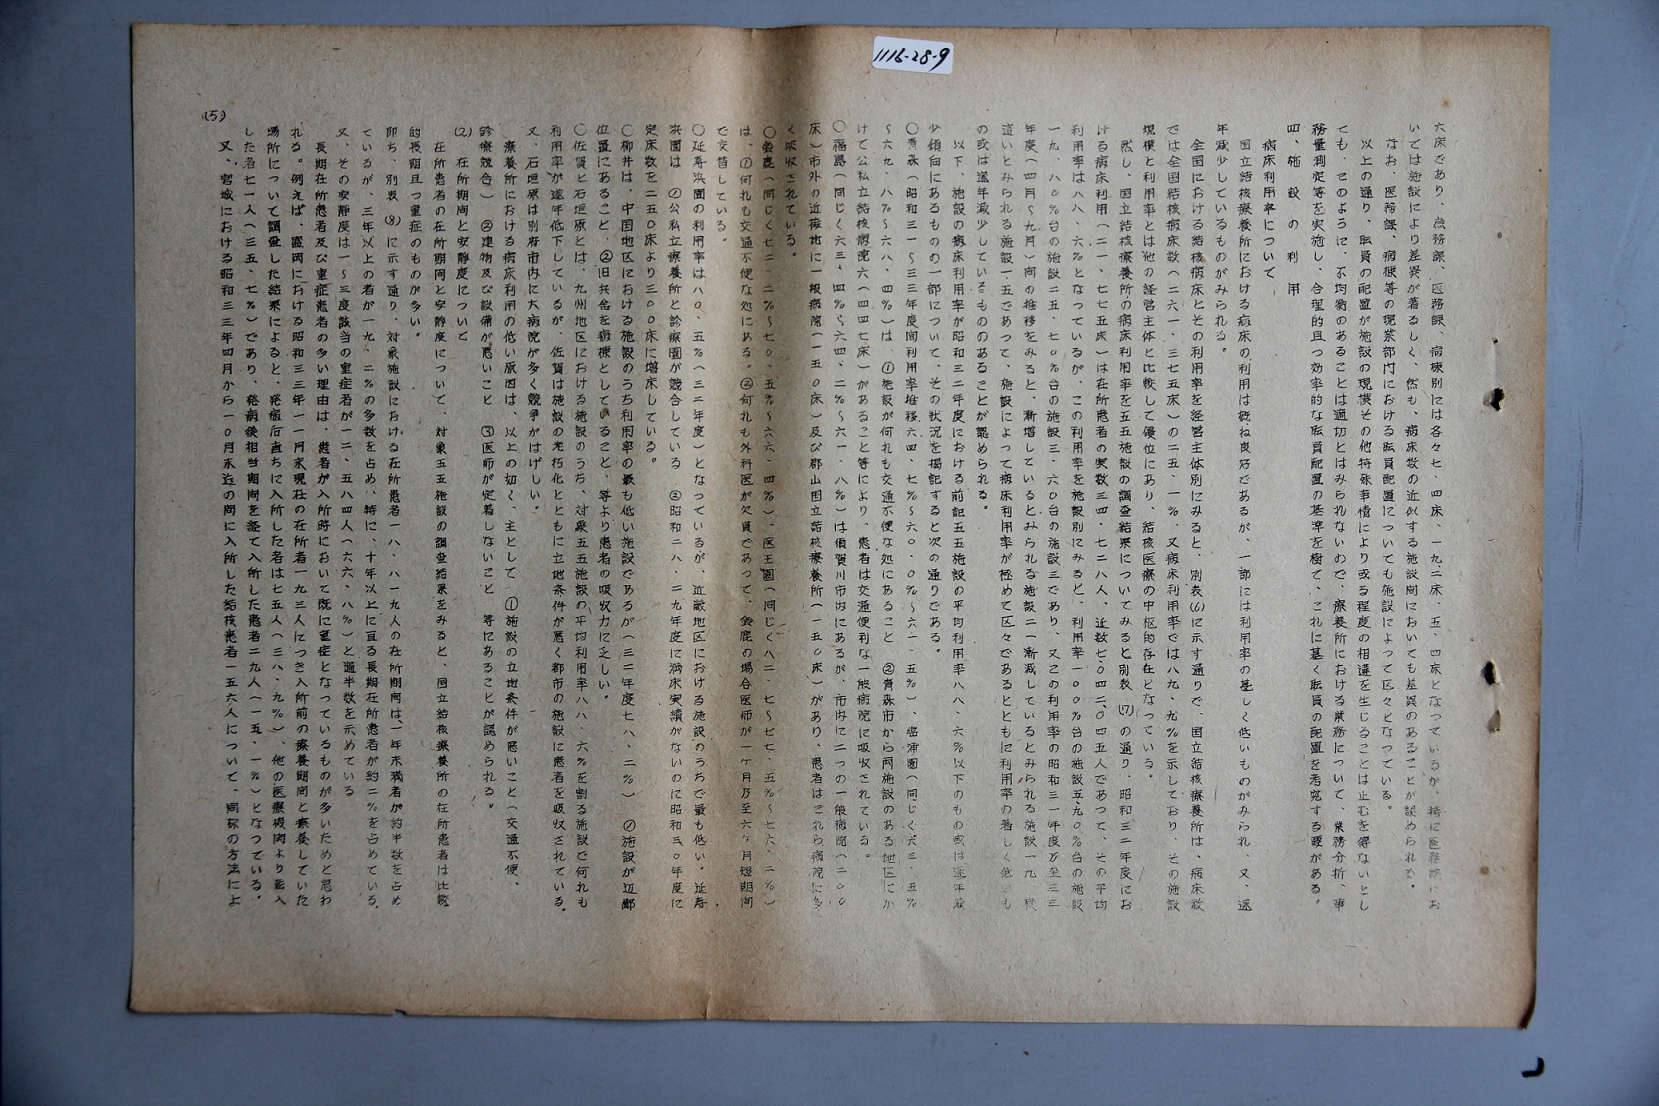 1116-28-9
六床であり、庶務課、医務課、病棟別には各々七.四床、一九二床、五.四床となつているが、特に医務課にお
いては施設により差異が著るしく、然も、病床数の近似する施設間においても差異のあることが認められる。
なお、医務課、病棟等の現業部門における職員配置についても施設によつて区々となつている。
以上の通り、職員の配置が施設の規模その他特殊事情により或る程度の相違を生じることは止むを得ないとし
ても、このように、不均衡のあることは適切とはみられないので、療養所における業務について、業務分析、事
務量測定等を実施し、合理的且つ効率的な職員配置の基準を樹て、これに基く職員の配置を考究する要がある。
四、施設の利用
病床利用率について
国立結核療養所における病床の利用は概ね良好であるが、一部には利用率の甚しく低いものがみられ、又、逐
年減少しているものがみられる。
全国における結核病床とその利用率を経営主体別にみると、別表(6)に示す通りで、国立結核療養所は、病床数
では全国結核病床数(二六一、三七五床)の二五.一%、又病床利用率では八九.九%を示しており、その施設
規模と利用率とは他の経営主体と比較して優位にあり、結核医療の中枢的存在となつている。
然し、国立結核療養所の病床利用率を五五施設の調査結果についてみると別表(7)の通り、昭和三二年度にお
ける病床利用(二一、七七五床)は在所患者の実数三四、七二八人、延数七、〇四二、〇四五人であつて、その平均
利用率は八八.六%となつているが、この利用率を施設別にみると、利用率一〇〇%台の施設五、九〇%台の施設
一九、八〇%台の施設二五、七〇%台の施設三、六〇台の施設三であり、又この利用率の昭和三一年度乃至三三
年度(四月~九月)間の推移をみると、漸増しているとみられる施設二一、漸減しているとみられる施設一九、横
這いとみられる施設一五であつて、施設によつて病床利用率が極めて区々であるとともに利用率の著しく低いも
の或は逐年減少しているもののあることが認められる。
以下、施設の病床利用率が昭和三二年度における前記五五施設の平均利用率八八.六%以下のもの或は逐年減
少傾向にあるものの一部について、その状況を摘記すると次の通りである。
〇青森(昭和三一~三三年度間利用率推移六四.七%~六〇.〇%~六一.五%)、臨浦園(同じく六三.五%
~六九.八%~六八.四%)は、①施設が何れも交通不便な処にあること ②青森市から両施設のある地区にか
けて公私立結核病院六(四四七床)があること等により、患者は交通便利な一般病院に吸収されている。
〇福島(同じく六三.四%~六四.二%~六一.八%)は須賀川市内にあるが、市内に二つの一般病院(二〇〇
床)市外の近接地に一般病院(一五〇床)及び郡山国立結核療養所(一五〇床)があり、患者はこれら病院に多
く吸収されている。
〇鈴鹿(同じく七二.二%~七〇.五%~六六.四%)、医王園(同じく八二.七~七七.五%~七六.二%)
は、①何れも交通不便な処にある。②何れも外科医が欠員であつて、鈴鹿の場合医師が一ケ月乃至六ケ月短期間
で交替している。
〇延寿浜園の利用率は八〇.五%(三二年度)となつているが、近畿地区における施設のうちで最も低い。延寿
浜園は ①公私立療養所と診療圏が競合している ②昭和二八、二九年度に満床実績がないのに昭和三〇年度に
定床数を二五〇床より三〇〇床に増床している。
〇柳井は、中国地区における施設のうち利用率の最も低い施設であるが(三二年度七八.二%) ①施設が辺鄙
位置にあること、②旧兵舎を病棟としていること、等より患者の吸収力に乏しい。
〇佐賀と石垣原とは、九州地区における施設のうち、対象五五施設の平均利用率八八.六%を割る施設で何れも
利用率が逐年低下しているが、佐賀は施設の老朽化とともに立地条件が悪く都市の施設に患者を吸収されている。
又、石垣原は別府市内に大病院が多く競争がはげしい。
療養所における病床利用の低い原因は、以上の如く、主として ①施設の立地条件が悪いこと(交通不便、
診療競合) ②建物及び設備が悪いこと ③医師が定着しないこと 等にあることが認められる。
(2) 在所期間と安静度について
在所患者の在所期間と安静度について、対象五五施設の調査結果をみると、国立結核療養所の在所患者は比較
的長期且つ重症のものが多い。
即ち、別表(8)に示す通り、対象施設における在所患者一八、八一九人の在所期間は、一年未満者が約半数を占め
ているが、三年以上の者が一九.二%の多数を占め、特に、十年以上に亘る長期在所患者が約二%を占めている。
又、その安静度は一~三度該当の重症者が一二、五八四人(六六.八%)と過半数を示めている
長期在所患者及び重症患者の多い理由は、患者が入所時において既に重症となつているものが多いためと思わ
れる。例えば、盛岡における昭和三三年一一月末現在の在所者一九三人につき入所前の療養期間と療養していた
場所について調査した結果によると、発病后直ちに入所した者は七五人(三八.九%)、他の医療機関より転入
した者七一人(三五.七%)であり、発病後相当期間を経て入所した患者二九人(一五.一%)となつている。
又、宮城における昭和三三年四月から一〇月末迄の間に入所した結核患者一五六人について、同様の方法によ
(5)